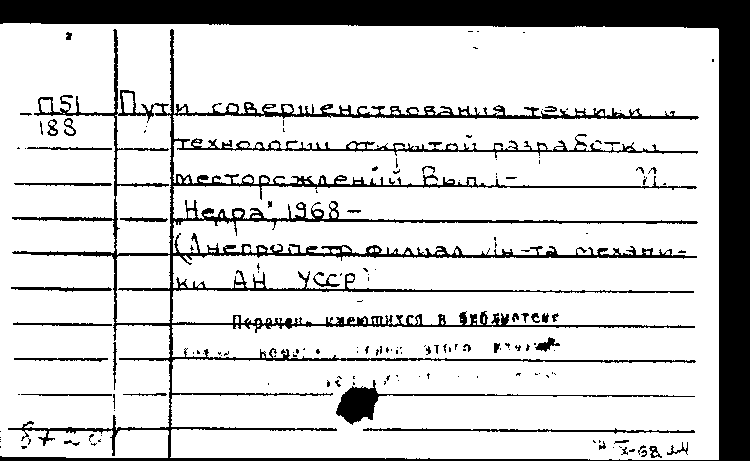 П51 Пути совершенствования техники и
188
технологии открытой разработки
месторождений. Вып. 1-
"Недра", 1968 –
(Днепропетр. филиал Ин-та механи-
ки АН УССР)
Перечень имеющихся в библиотеке
этого
8+20
X-68